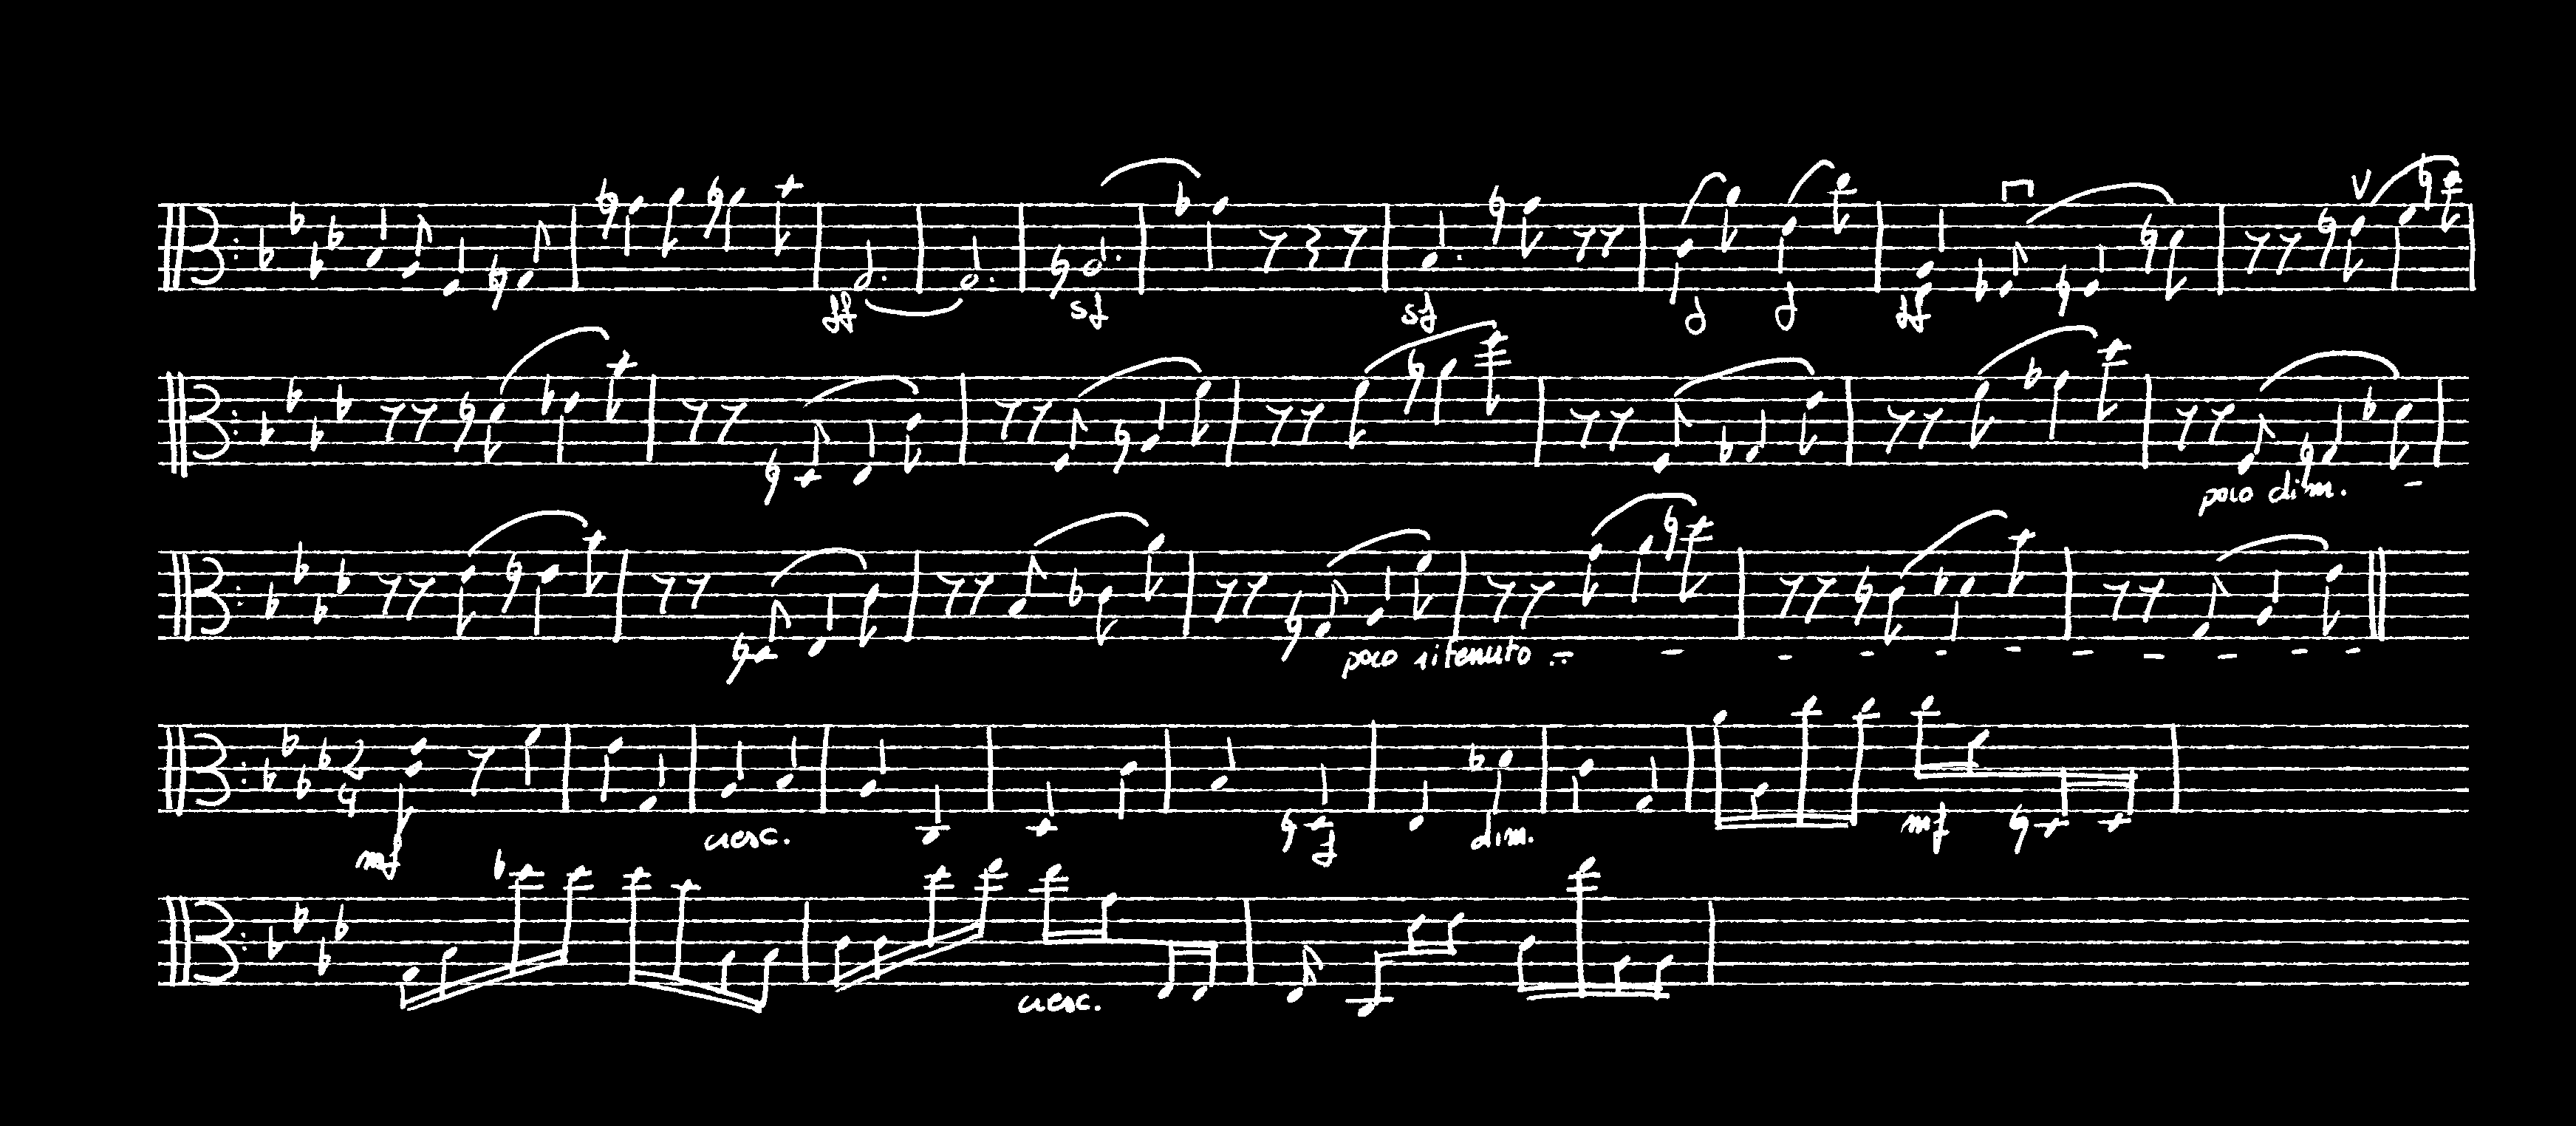 ff sf sf f f ff
poco dim. -
poco ritenuto .. - - - - - - - - - - -
2 4 mf cresc. f dim. mf
cresc.